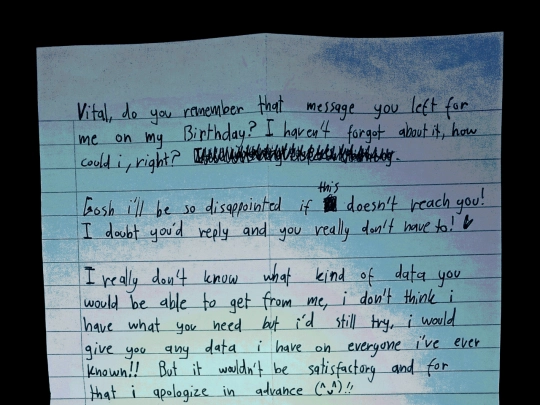 Vital, do you remember that message you left for
me on my Birthday? I haven't forgot about it, how
could i, right?
this
Gosh i'll be so disappointed if doesn't reach you!
I doubt you'd reply and you really don't have to!
I really don't know what kind of data you
would be able to get from me, i don't think i
have what you need but i'd still try, i would
give you any data i have on everyone i've ever
known!! But it wouldn't be satisfactory and for
that i apologize in advance (^◡^)!!